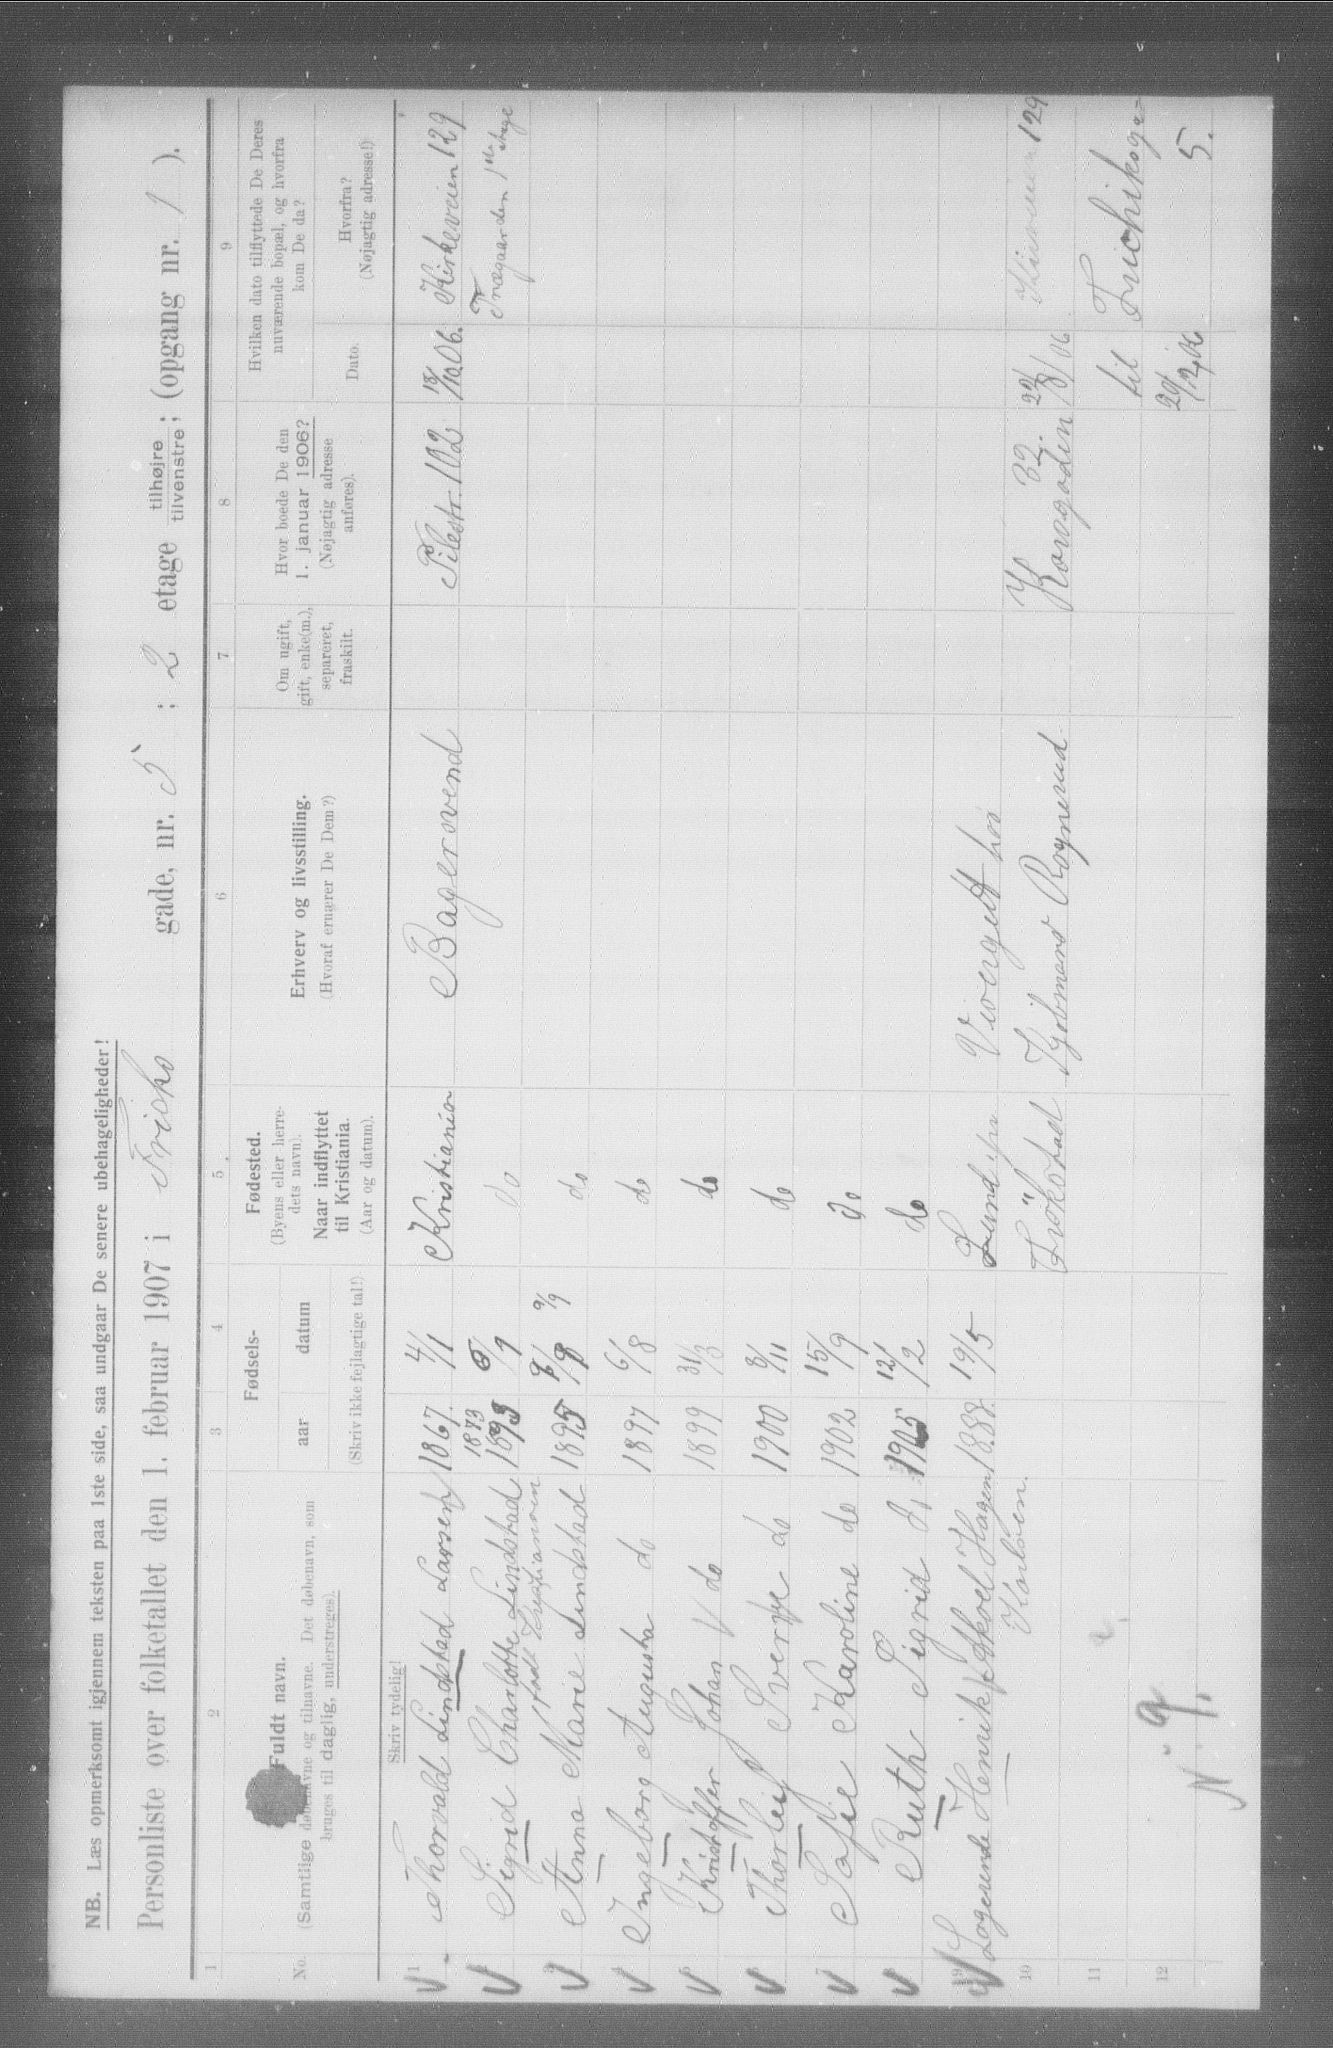 NB. Læs opmerksomt igjennem teksten paa 1ste side, saa undgaar De senere ubehageligheder!
Personliste over folketallet den 1. februar 1907 i Frichs gade, nr. 5 ; 2 etage tilhøjre tilvenstre; (opgang nr. 1 ).
1 2 3 4 5 6 7 8 9
No.
Fuldt navn.
(Samtlige døbenavne og tilnavne. Det døbenavn, som
bruges til daglig, understreges).
Fødsels-
aar datum
(Skriv ikke fejlagtige tal!)
Fødested.
(Byens eller herre-
dets navn).
Naar indflyttet
til Kristiania.
(Aar og datum).
Erhverv og livsstilling.
(Hvoraf ernærer De Dem?)
Om ugift,
gift, enke(m.),
separeret,
fraskilt.
Hvor boede De den
1. januar 1906?
(Nøjagtig adresse
anføres).
Hvilken dato tilflyttede De Deres
nuværende bopæl, og hvorfra
kom De da?
Dato.
Hvorfra?
(Nøjagtig adresse!)
Skriv tydelig!
1 Thorvald Lindstad Larsen 1867 4/1 Kristiania Bagersvend Pilestr. 102 18/10 06. Kirkeveien 129
Trægaarden 1ste etage
1873
2 Sigrid Charlotte Lindstad 6/1 do
født Kristiansen
3 Anna Marie Lindstad 1895 9/9 do
4 Ingeborg Augusta do 1897 6/8 do
5 Kristoffer Johan do 1899 31/3 do
6 Thorleif Sverre do 1900 8/11 do
7 Sofie Karoline do 1902 15/9 do
8 Ruth Sigrid do 1905 12/2 do
9 Logerende Henrik Hagen 1888 19/5 Lund Visergut hos
Karlsen.
10 Kjøbmand Rognerud Korsgaden 32. 129
11 til
12 5.
N. 9.